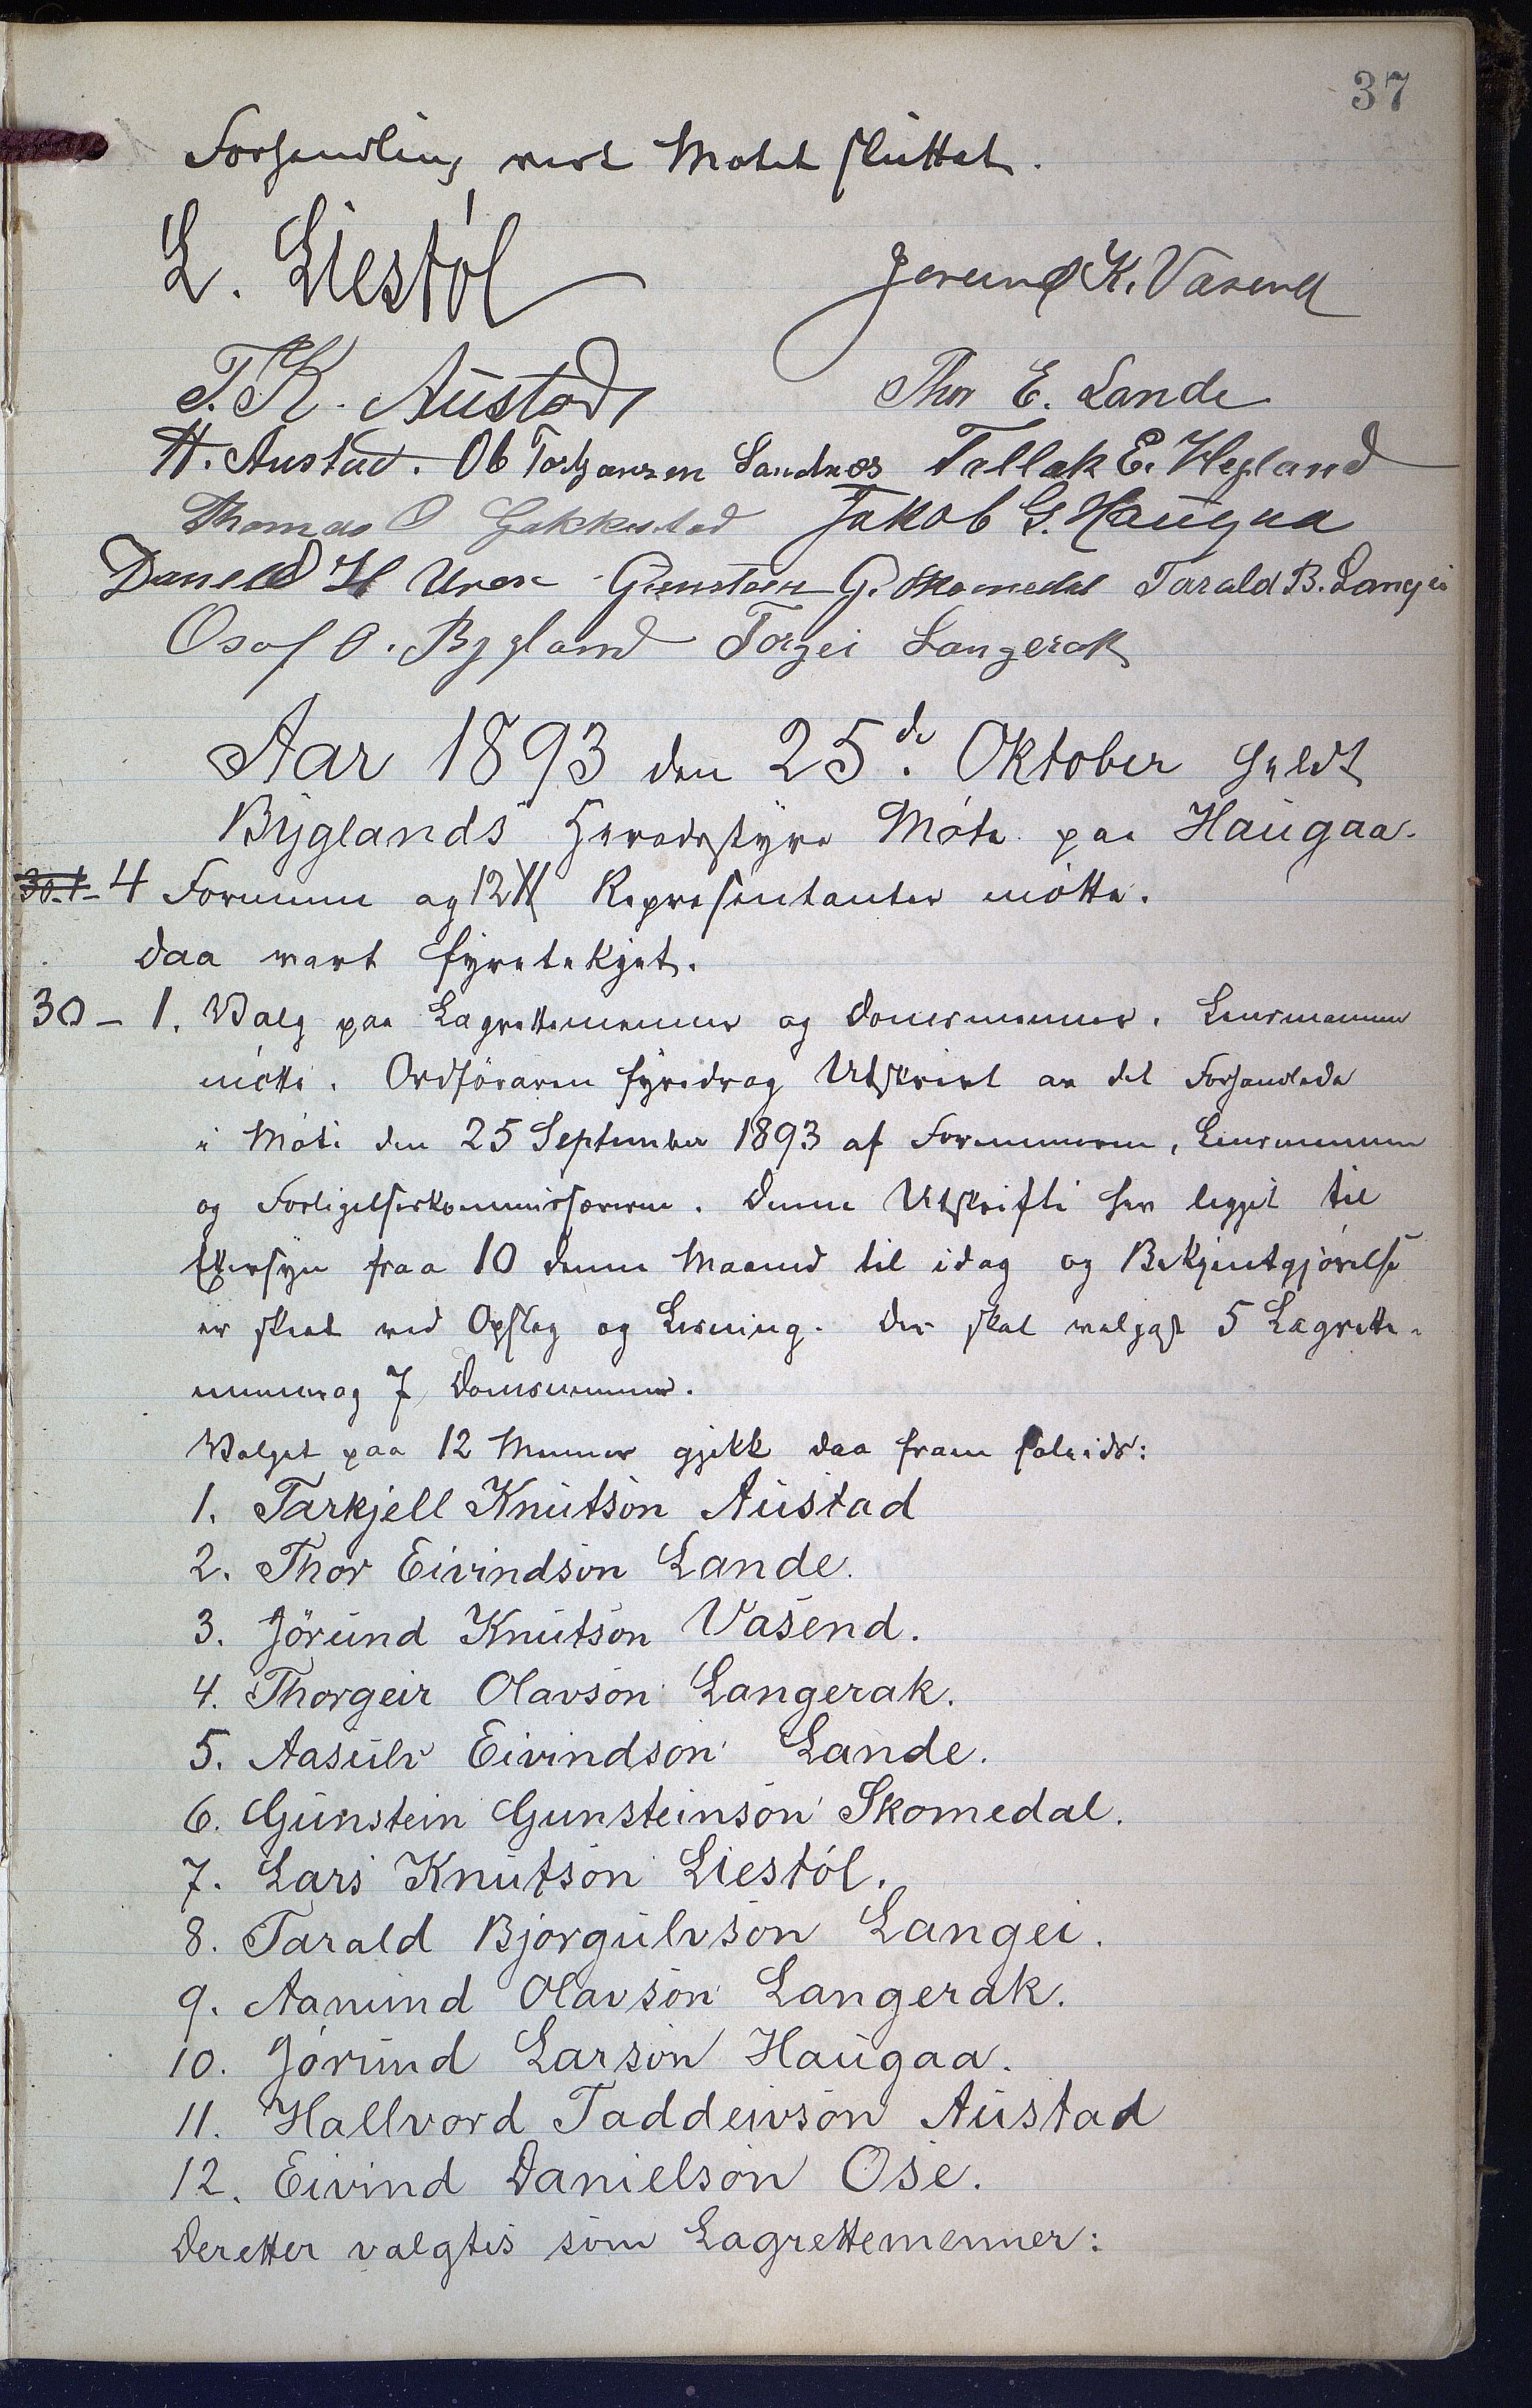 37
Forhandling vert Møtet sluttat.
L. Liestøl
Jorund K. Vasend
T. K. Austad,
Thor E. Lande
H. Austad. Ob Torhansen Sandnes Tallak E. Hegland
Thomas O Gakkestad Jakob G. Haugaa
Daniel H Urea Gunstein G. Skomedal Tarald B. Langei
Osof O. Bygland Torgei Langerak
Aar 1893 den 25de. Oktober heldt
Byglands Heradsstyre Møte paa Haugaa.
30-1- 4 Formenn og 12 Representantar møtte.
Daa vart fyretekjet.
30 - 1. Valg paa Lagrettemenner og Domsmenner. Lensmannen
møtte. Ordføraren fyredrog Utskrivt av det Forhandlede
i Møte den 25 September 1893 af Formennerne, Lensmannen
og Forligelseskommissærerne. Denne Utskrifti hev legget til
Ettersyn fraa 10 denne Maaned til idag og Bekjentgjørelse
er skeet ved Opslag og Lesning. Der skal veljast 5 Lagrette-
menner og 7 Domsmenner.
Valget paa 12 Menner gjekk daa fram soleids:
1. Tarkjell Knutson Austad
2. Thor Eivindson Lande.
3. Jørund Knutson Vasend.
4. Thorgeir Olavson Langerak.
5. Aasulv Eivindson Lande.
6. Gunstein Gunsteinson Skomedal.
7. Lars Knutson Liestøl.
8. Tarald Bjorgulvson Langei.
9. Aanund Olavson Langerak.
10. Jørund Larson Haugaa.
11. Hallvord Taddeivson Austad
12. Eivind Danielson Ose.
Deretter valgtes som Lagrettemenner: